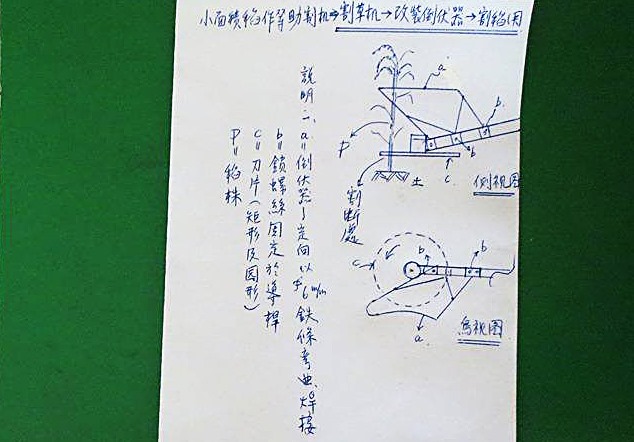 小面積稻作等助割机→割草机→改装倒伏器→割稻用
説明二、a=倒伏器(定向以 6m/m 鉄條弯曲、焊接
b=鎖螺絲固定於導桿
c=刀片(矩形及圆形)
p=稻株
a
b
p
b
土
c
侧視图
割斷處
c
b
b
a
鳥視图